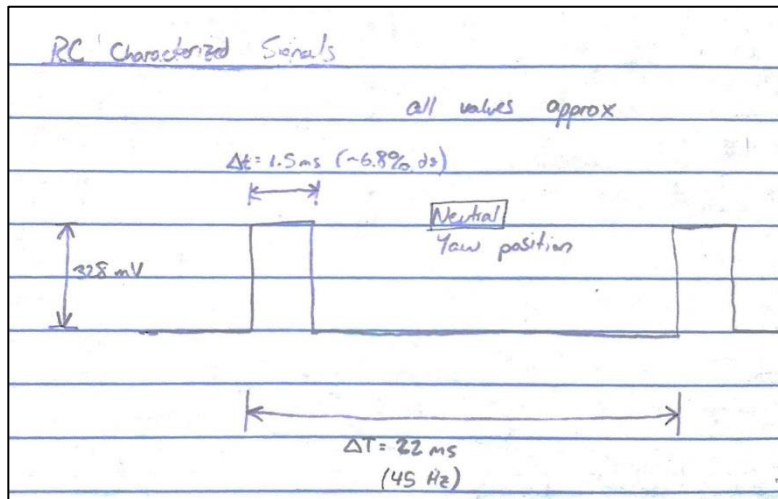 RC Characterized Signals
all values approx
Δt = 1.5ms (~6.8% ds)
Neutral
Yaw position
328 mV
ΔT = 22 ms
(45 Hz)